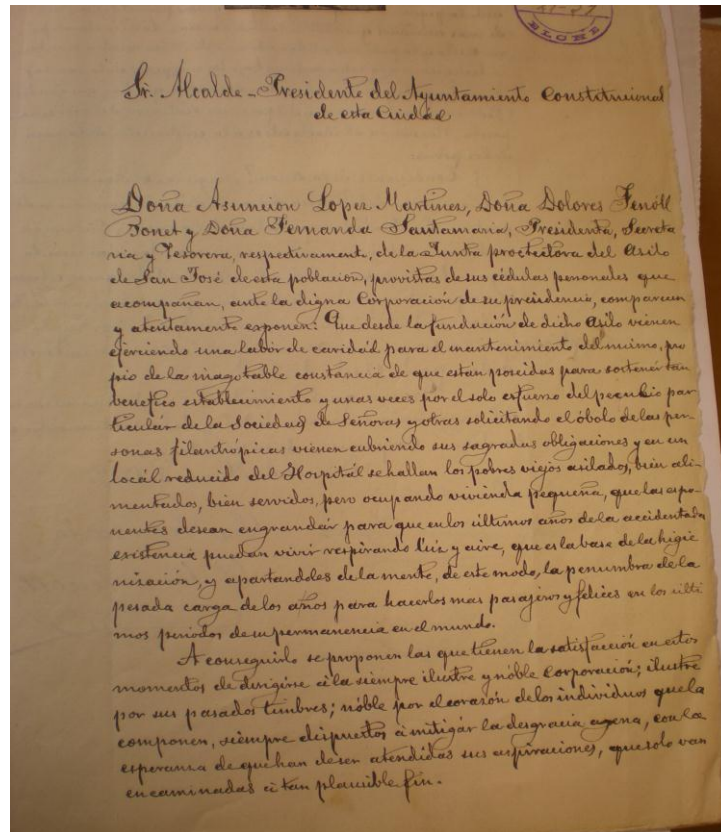 ELCHE
Sr. Alcalde-Presidente del Ayuntamiento Constitucional
de esta Ciudad
Doña Asuncion Lopez Martinez, Doña Dolores Fenóll
Bonet y Doña Fernanda Santamaria, Presidenta, Secreta
ria y Tesorera, respectivamente, de la Junta proctectora del Asilo
de San José de esta poblacion, provistas de sus cédulas personales que
acompañan, ante la digna Corporación de su presidencia, comparecen
y atentamente exponen: Que desde la fundución de dicho Asilo vienen
ejerciendo una labor de caridád para el mantenimiento del mismo, pro
pio de la inagotable constancia de que están poseidas para sostener tan
benefico establecimiento y unas veces por el solo esfuerzo del peculio par
ticulár de la Sociedad de Señoras y otras solicitando el óbolo de las per-
sonas filantrópicas vienen cubriendo sus sagradas obligaciones y en un
locál reducido del Hospitál se hallan los pobres viejos asilados, bien ali-
mentados, bien servidos, pero ocupando vivienda pequeña, que las expo-
nentes desean engrandár para que en los últimos años de la accidentada
existencia puedan vivir respirando luz y aire, que es la base de la higie
nización, y apartandoles de la mente, de este modo, la penumbra de la
pesada carga de los años para hacerlos mas pasajeros y felices en los ulti
mos periodos de su permanencia en el mundo.
A conseguirlo se proponen las que tienen la satisfacción en estos
momentos de dirigirse á la siempre ilustre y nóble Corporación; ilustre
por sus pasados timbres; nóble por el corazón de los individuos que la
componen, siempre dispuestos á mitigár la desgracia agena, con la
esperanza de que han de ser atendidas sus aspiraciones, que solo van
encaminadas á tan plausible fin.